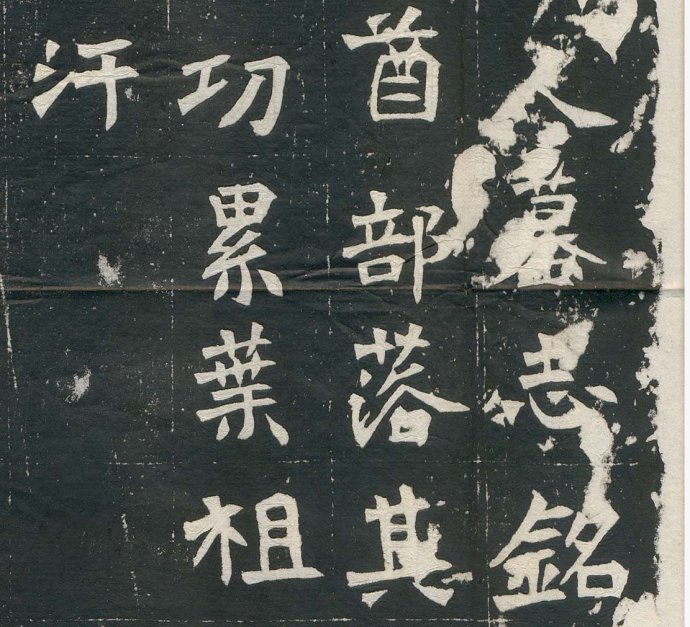 人墓志銘
酋部落其
功累葉祖
汗